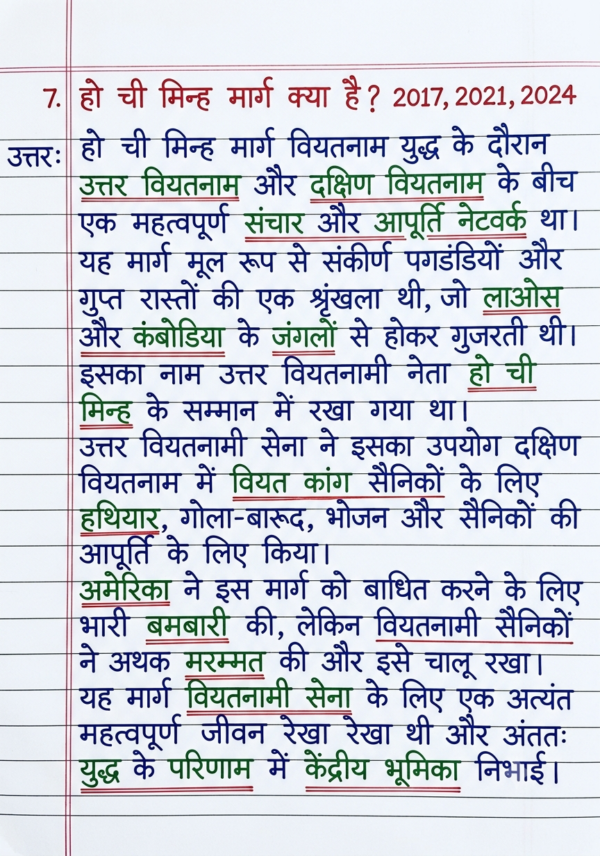 7. हो ची मिन्ह मार्ग क्या है? 2017, 2021, 2024
उत्तरः हो ची मिन्ह मार्ग वियतनाम युद्ध के दौरान
उत्तर वियतनाम और दक्षिण वियतनाम के बीच
एक महत्वपूर्ण संचार और आपूर्ति नेटवर्क था।
यह मार्ग मूल रूप से संकीर्ण पगडंडियों और
गुप्त रास्तों की एक श्रृंखला थी, जो लाओस
और कंबोडिया के जंगलों से होकर गुजरती थी।
इसका नाम उत्तर वियतनामी नेता हो ची
मिन्ह के सम्मान में रखा गया था।
उत्तर वियतनामी सेना ने इसका उपयोग दक्षिण
वियतनाम में वियत कांग सैनिकों के लिए
हथियार, गोला-बारूद, भोजन और सैनिकों की
आपूर्ति के लिए किया।
अमेरिका ने इस मार्ग को बाधित करने के लिए
भारी बमबारी की, लेकिन वियतनामी सैनिकों
ने अथक मरम्मत की और इसे चालू रखा।
यह मार्ग वियतनामी सेना के लिए एक अत्यंत
महत्वपूर्ण जीवन रेखा रेखा थी और अंततः
युद्ध के परिणाम में केंद्रीय भूमिका निभाई।